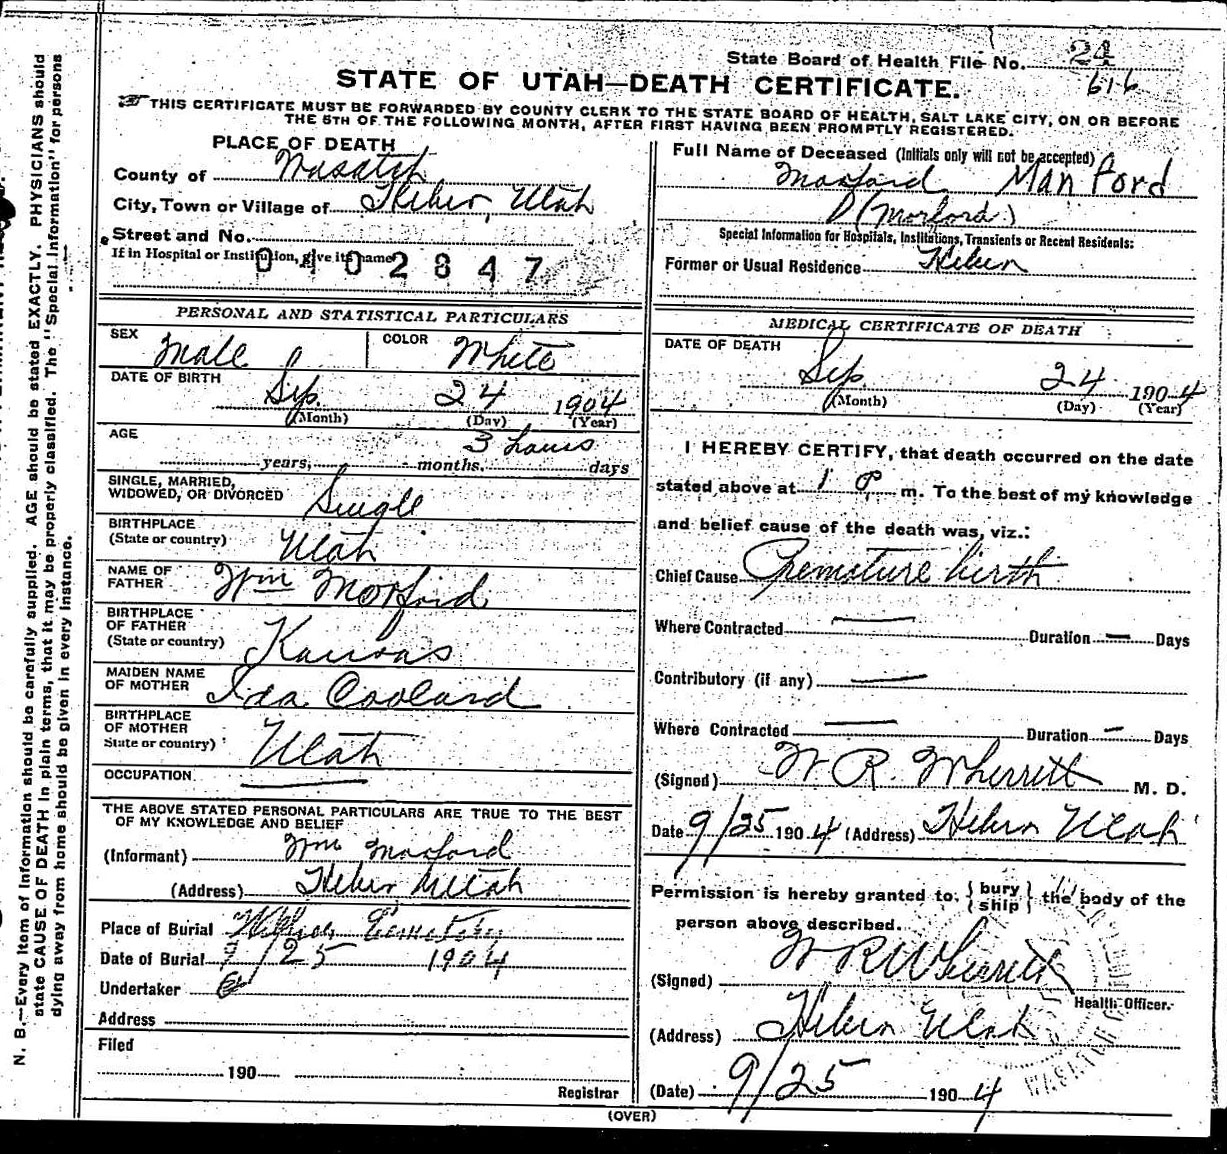 State Board of Health File No. 24
616
STATE OF UTAH—DEATH CERTIFICATE.
THIS CERTIFICATE MUST BE FORWARDED BY COUNTY CLERK TO THE STATE BOARD OF HEALTH, SALT LAKE CITY, ON OR BEFORE
THE 5TH OF THE FOLLOWING MONTH, AFTER FIRST HAVING BEEN PROMPTLY REGISTERED.
PLACE OF DEATH
County of Wasatch
City, Town or Village of Heber, Utah
Street and No.
If in Hospital or Institution, give its name
0402847
Full Name of Deceased (Initials only will not be accepted)
Morford Man Ford
(Morford)
Special Information for Hospitals, Institutions, Transients or Recent Residents:
Former or Usual Residence Heber
PERSONAL AND STATISTICAL PARTICULARS
SEX Male COLOR White
DATE OF BIRTH
Sep. 24 1904
(Month) (Day) (Year)
AGE 3 hours
years, months, days
SINGLE, MARRIED,
WIDOWED, OR DIVORCED Single
BIRTHPLACE
(State or country) Utah
NAME OF
FATHER Wm Morford
BIRTHPLACE
OF FATHER
(State or country) Kansas
MAIDEN NAME
OF MOTHER Ida
BIRTHPLACE
OF MOTHER
State or country) Utah
OCCUPATION
THE ABOVE STATED PERSONAL PARTICULARS ARE TRUE TO THE BEST
OF MY KNOWLEDGE AND BELIEF
(Informant) Wm Morford
(Address) Heber Utah
Place of Burial Cemetery
Date of Burial 9/25 1904
Undertaker
Address
Filed
190
Registrar
MEDICAL CERTIFICATE OF DEATH
DATE OF DEATH
Sep 24 1904
(Month) (Day) (Year)
I HEREBY CERTIFY, that death occurred on the date
stated above at 1 P m. To the best of my knowledge
and belief cause of the death was, viz.:
Chief Cause Premature birth
Where Contracted — Duration — Days
Contributory (if any) —
Where Contracted — Duration — Days
(Signed) W R. Wherritt M. D.
Date 9/25 1904 (Address) Heber Utah
Permission is hereby granted to { bury ship } the body of the
person above described.
(Signed) W R Wherritt
Health Officer.
(Address) Heber Utah
(Date) 9/25 1904
(OVER)
N. B.—Every item of information should be carefully supplied. AGE should be stated EXACTLY. PHYSICIANS should
state CAUSE OF DEATH in plain terms, that it may be properly classified. The "Special Information" for persons
dying away from home should be given in every instance.